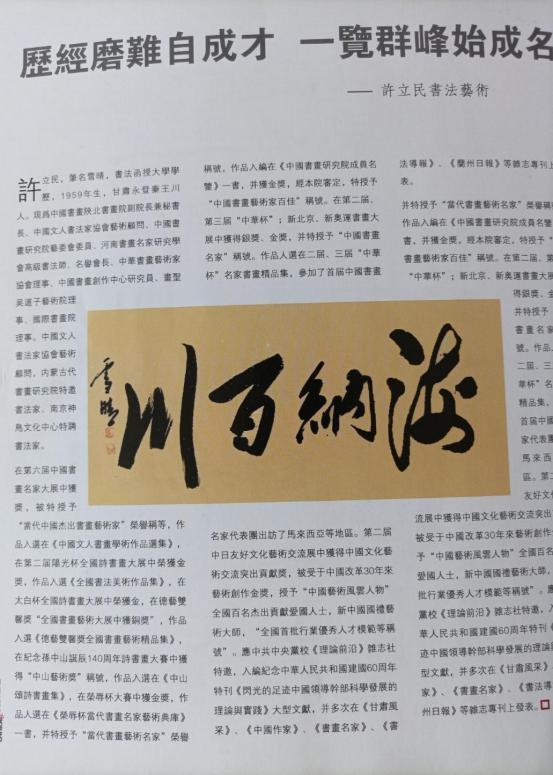 歷經磨難自成才 一覽群峰始成名
—— 許立民書法藝術
許立民，筆名雪晴，書法函授大學學
歷，1959年生，甘肅永登秦王川
人。現爲中國書畫陝北書畫院副院長兼秘書
長、中國文人書法家協會藝術顧問、中國書
畫研究院藝委會委員、河南書畫名家研究學
會高級書法師、名譽會長、中華書畫藝術家
協會理事、中國書畫創作中心研究員、畫聖
吴道子藝術院理
事、國際書畫院
理事。中國文人
書法家協會藝術
顧問，内蒙古代
書畫研究院特邀
書法家、南京神
鳥文化中心特聘
書法家。
在第六届中國書
畫名家大展中獲
獎，被特授予
“當代中國杰出書畫藝術家”榮譽稱等，作
品入選在《中國文人書畫學術作品選集》，
在第二届陽光杯全國詩書畫大展中榮獲金
獎，作品入選《全國書法美術作品集》，在
太白杯全國詩書畫大展中榮獲金，在德藝雙
馨獎“全國書畫藝術大展中獲銅獎”，作品
入選《德藝雙馨全國書畫藝術精品集》，
在紀念孫中山誕辰140周年詩書畫大賽中獲
得“中山藝術獎”稱號，作品入選在《中山
頌詩書畫集》，在榮辱杯大賽中獲金獎，作
品入選在《榮辱杯當代書畫名家藝術典庫》
一書，并特授予“當代書畫藝術名家”榮譽
稱號，作品入編在《中國書畫研究院成員名
鑒》一書，并獲金獎，經本院審定，特授予
“中國書畫藝術家百佳”稱號。在第二届、
第三届“中華杯”；新北京、新奥運書畫大
展中獲得銀獎、金獎，并特授予“中國書畫
名家”稱號。作品人選在二届、三届“中華
杯”名家書畫精品集，參加了首届中國書畫
海納百川
雪晴
名家代表團出訪了馬來西亞等地區。第二届
中日友好文化藝術交流展中獲得中國文化藝
術交流突出貢獻獎，被受于中國改革30年來
藝術創作金獎，授予“中國藝術風雲人物”
全國百名杰出貢獻愛國人士，新中國國禮藝
術大師，“全國首批行業優秀人才模範等稱
號”。應中共中央黨校《理論前沿》雜志社
特邀，入編紀念中華人民共和國建國60周年
特刊《閃光的足迹中國領導幹部科學發展的
理論與實踐》大型文獻，并多次在《甘肅風
采》、《中國作家》、《書畫名家》、《書
法導報》、《蘭州日報》等雜志專刊上
表。
并特授予“當代書畫藝術名家”榮譽稱
作品入編在《中國書畫研究院成員名
書，并獲金獎，經本院審定，特授予“
書畫藝術家百佳”稱號。在第二届、第
“中華杯”；新北京、新奥運書畫大展
得銀獎、金
并特授予
書畫名家
號。作品人
二届、三
華杯”名
精品集，
首届中國
家代表團
馬來西
區。第二
友好文化
流展中獲得中國文化藝術交流突出
被受于中國改革30年來藝術創作
予“中國藝術風雲人物”全國百名
愛國人士，新中國國禮藝術大師，
批行業優秀人才模範等稱號”。應
黨校《理論前沿》雜志社特邀，入
華人民共和國建國60周年特刊《
中國領導幹部科學發展的理論
型文獻，并多次在《甘肅風采》
家》、《書畫名家》、《書法導
州日報》等雜志專刊上發表。